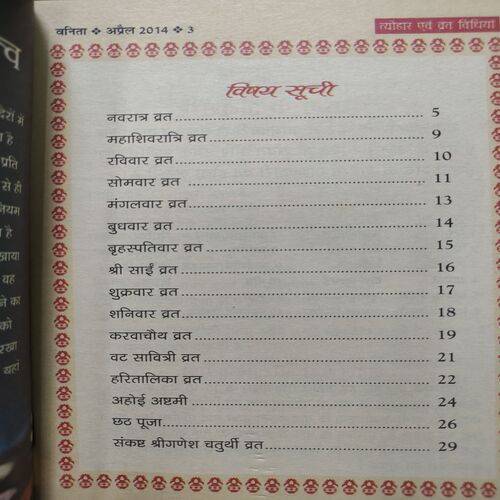 वनिता ❖ अप्रैल 2014 ❖ 3
त्योहार एवं व्रत विधियां
विषय सूची
नवरात्र व्रत 5
महाशिवरात्रि व्रत 9
रविवार व्रत 10
सोमवार व्रत 11
मंगलवार व्रत 13
बुधवार व्रत 14
बृहस्पतिवार व्रत 15
श्री साईं व्रत 16
शुक्रवार व्रत 17
शनिवार व्रत 18
करवाचौथ व्रत 19
वट सावित्री व्रत 21
हरितालिका व्रत 22
अहोई अष्टमी 24
छठ पूजा 26
संकष्ट श्रीगणेश चतुर्थी व्रत 29
में
है
प्रति
से ही
है
यह
को
यहां